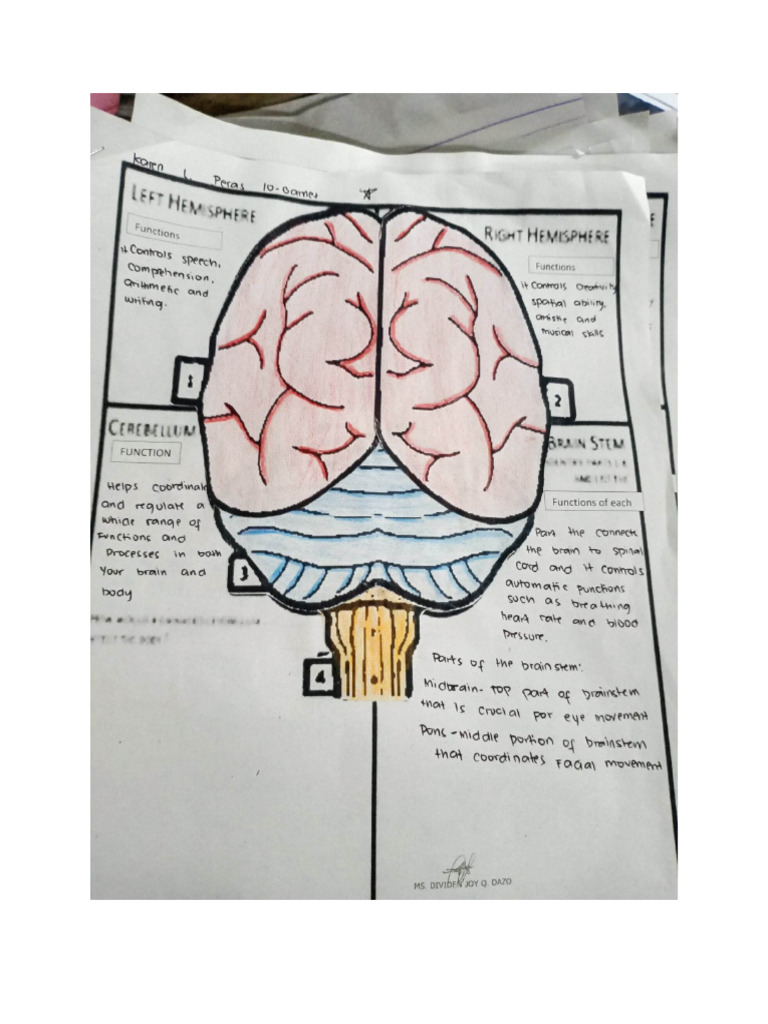 Karen L. Peras 10-
LEFT HEMISPHERE
Functions
it controls speech,
comprehension,
arithmetic and
writing.
1
RIGHT HEMISPHERE
Functions
it controls creativity
spatial ability,
artistic and
musical skills
2
CEREBELLUM
FUNCTION
Helps coordinate
and regulate a
whide range of
functions and
Processes in both
your brain and
body
3
BRAIN STEM
Functions of each
Part the connects
the brain to spinal
cord and it controls
automatic functions
such as breathing
heart rate and blood
pressure.
4
Parts of the brainstem:
Midbrain- top part of brainstem
that is crucial for eye movement
Pons - middle portion of brainstem
that coordinates facial movement
MS. DIVIDEN JOY Q. DAZO